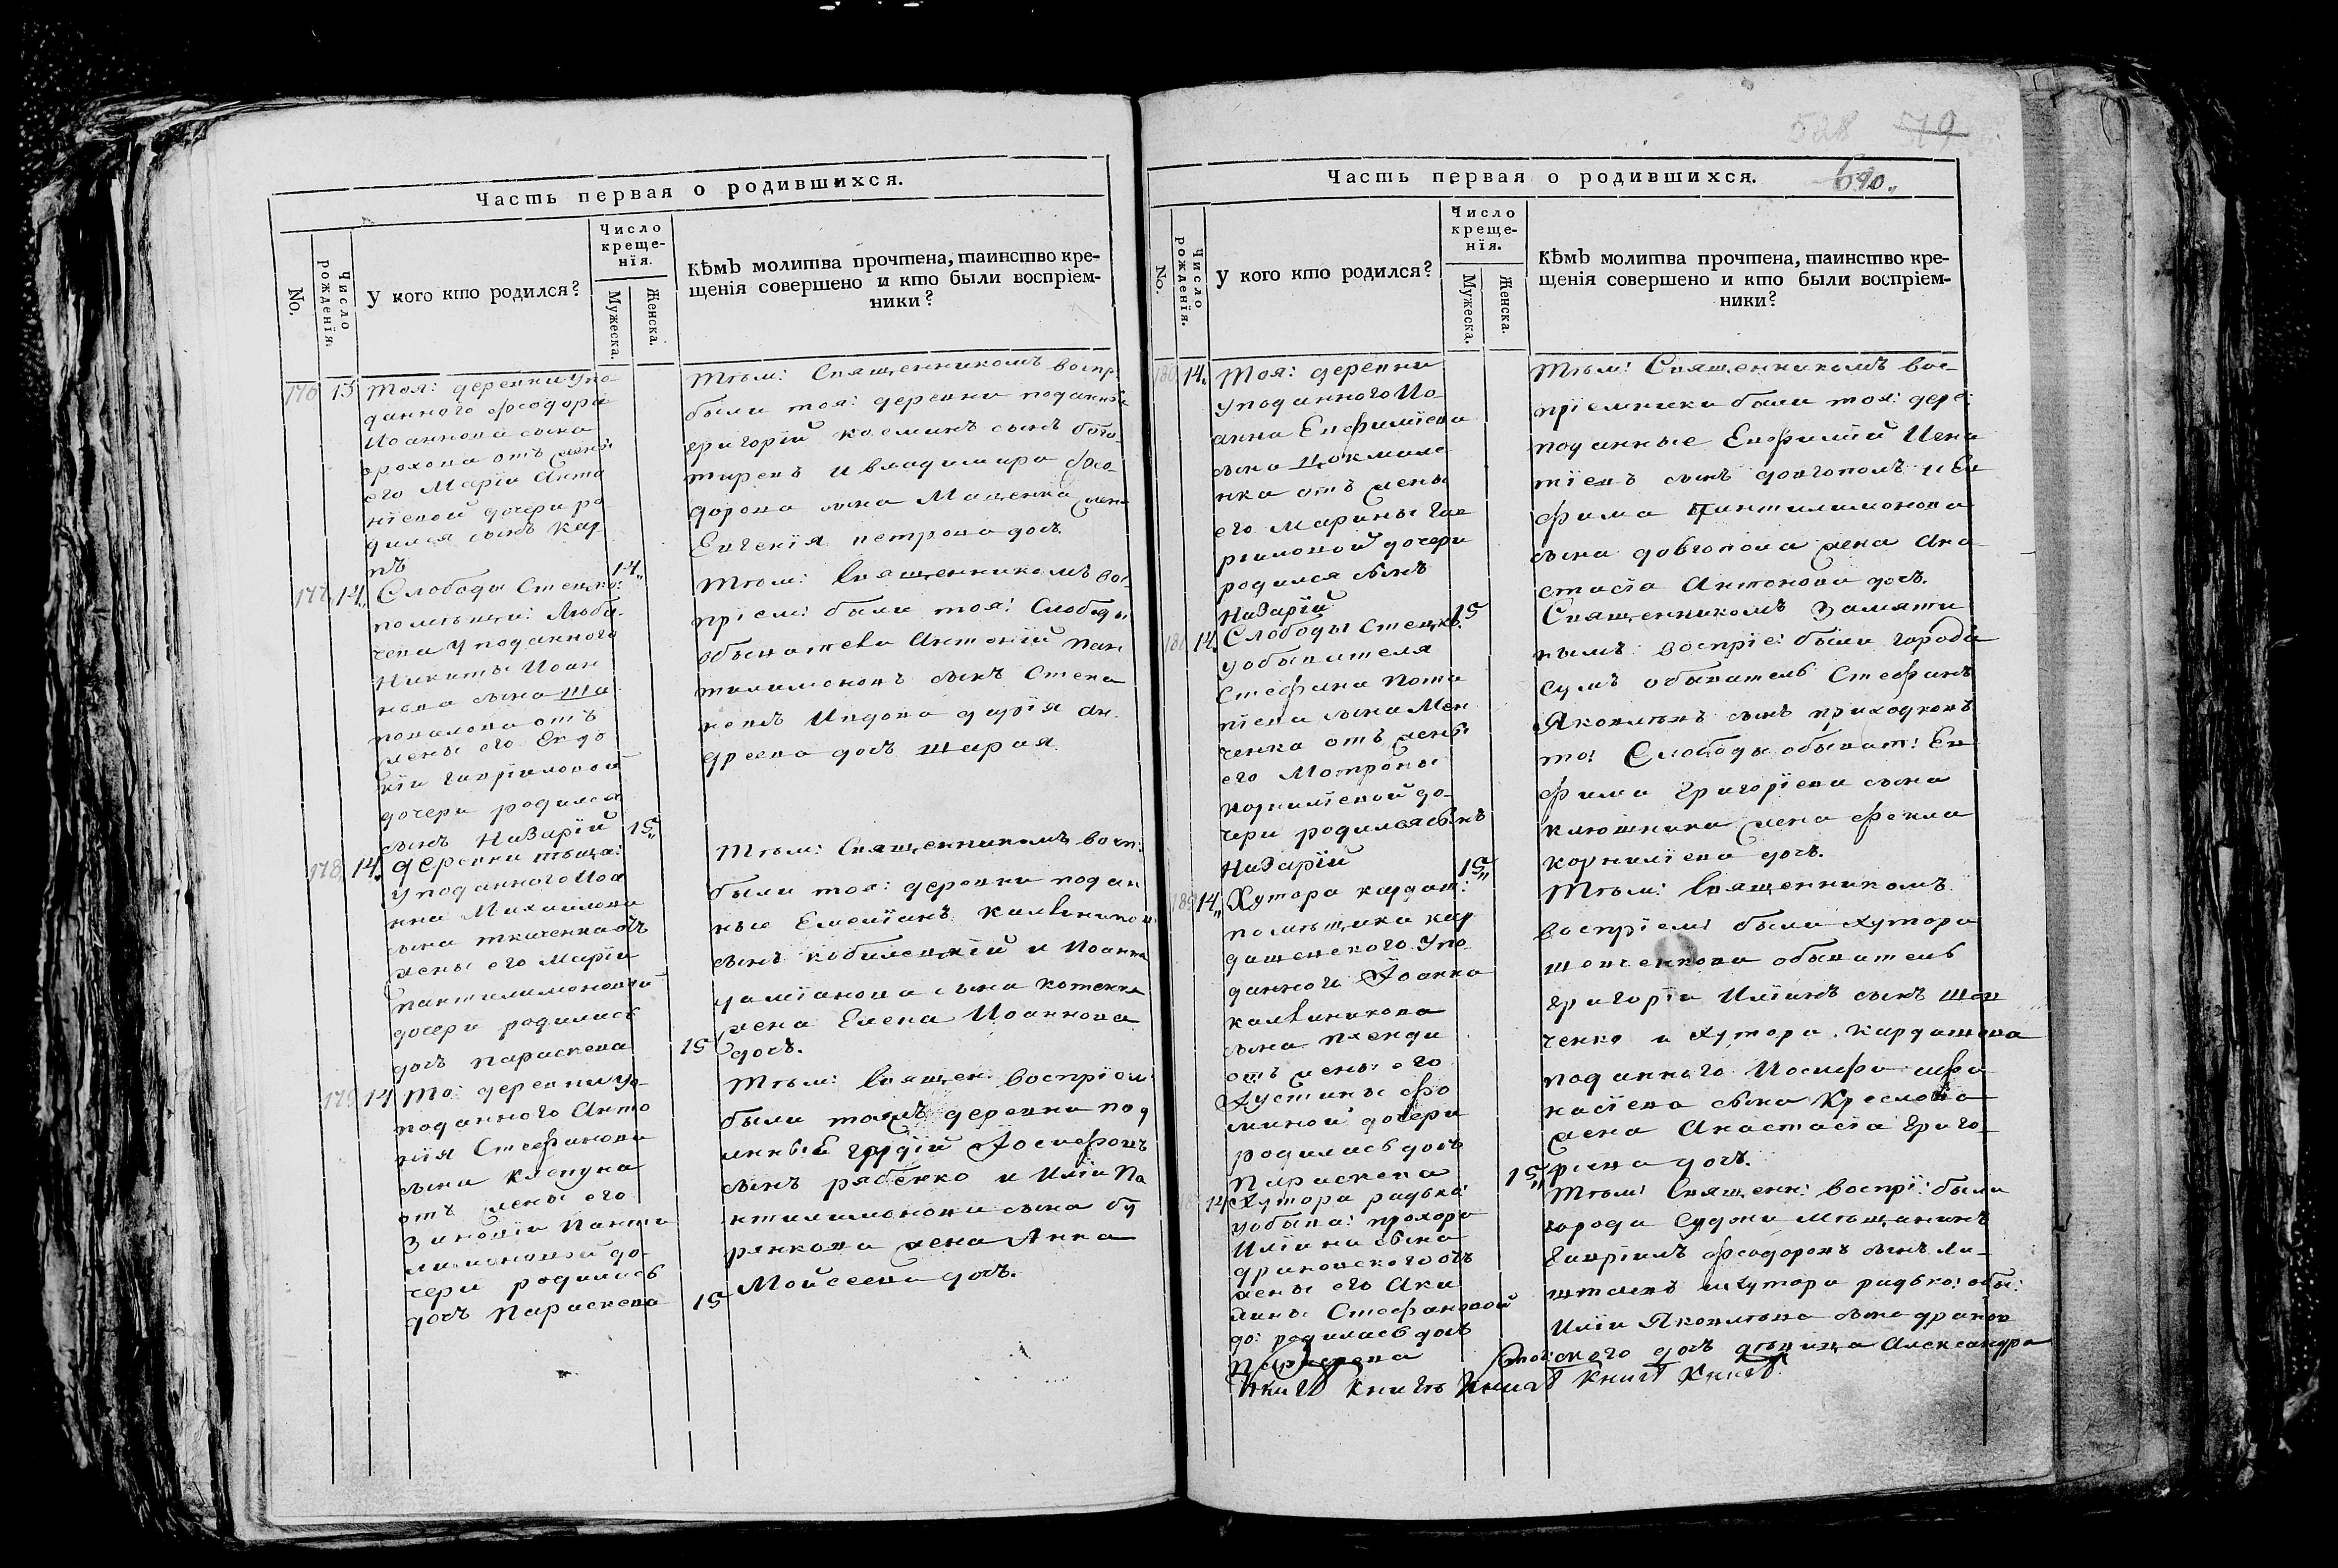 Часть первая о родившихся.
No.
Число рожденїя.
У кого кто родился?
Число
креще-
нїя.
Мужеска.
Женска.
Кѣмъ молитва прочтена, таинство кре-
щенїя совершено и кто были воспрїем-
ники?
176 13 Тоя: деревни упо
данного Феодора
Иоаннова сына
от жены
его Марїи Анто
нїевой дочери ро
дился сынъ Кар
пъ 14"
Тѣм: Священникомъ воспр:
были тоя: деревни поданныя
Григорїй Козминъ сынъ бого
тиревъ и владимира Фео
дорова сына Мащенка жена
Евгенїя петрова дочъ.
177 14" Слободы Стецко:
помѣщи: Люби
чева у поданного
Никиты Иоан
нова сына Ша
повалова отъ
жены его Евдо
кїи Гаврїиловой
дочери родился
сынъ Назарїй 15"
Тѣм: Священникомъ вос
прїем: были тоя: Слободы
обыватели Антонїй Пан
тилимоновъ сынъ Степа
ненко Вдова дарїя Ан
дреева дочъ шарая
178 14" деревни
у поданного Иоа
нна Михаилова
сына ткаченка отъ
жены его Марїи
пантилимоновой
дочери родилась
дочъ параскева 15
Тѣм: Священникомъ восп:
были тоя: деревни подан
ные Емелїянъ Калениковъ
сынъ кобилецкїй и Иоанна
дамїанова сына котенка
жена Елена Иоаннова
дочъ.
179 14 То: деревни у
поданного Анто
нїя Стефанова
сына
отъ жены его
Зиновїи Панти
лимоновой до
чери родилась
дочъ Параскева 15
Тѣм: Священ: воспрїем:
были тояжъ деревни под
анный Гордїй Іосифовъ
сынъ рябенко и Илїи Па
нтилимонова сына бу
рякова жена Анна
Мойсеева дочъ.
528 579
690"
Часть первая о родившихся.
No.
Число рожденїя.
У кого кто родился?
Число
креще-
нїя.
Мужеска.
Женска.
Кѣмъ молитва прочтена, таинство кре-
щенїя совершено и кто были воспрїем-
ники?
180 14" Тоя: деревни
у поданного Ио
анна Евфимїева
сына
нка отъ жены
его Марины Гав
рииловой дочери
родился сынъ
Назарїй 15
Тѣм: Священникомъ вос
прїемники были тоя: дере:
поданные Евфимїй Игна
тїевъ сынъ довгополъ и Ев
фима Пантилимонова
сына довгопола жена Ана
стасїя Антонова дочъ.
181 14" Слободы Стецков:
у обывателя
Стефана Пота
пїева сына Мен
ченка отъ жены
его Мотроны
Корнилїевой до
чери родился сынъ
Назарїй 15"
Священникомъ Замяти
нымъ: Воспрїе: были города
Сумъ обыватель Стефанъ
Яковлевъ сынъ приходковъ
то: Слободы обыват: Ев
фима Григорїева сына
Ключника жена Фекла
корнилїева дочъ.
182 14" Хутора кардаш:
помѣщика Кар
дашевского у по
данного Іоанна
каленикова
сына
отъ жены его
Хустины Фо
миной дочери
родилась дочъ
Параскева 15"
Тѣм: Священникомъ
воспрїем: были Хутора
шевченкова обыватель
Григорїй Илїинъ сынъ шев
ченко и Хутора Кардашева
поданного Иосифа Афа
насїева сына Креслова
жена Анастасїя Григо
рїева дочъ.
14 Хутора радько:
у обыва: прохора
Илїина сына
драновского отъ
жены его Аки
лины Стефановой
до: родилась дочъ
параскева
Тѣм: Священ: воспрї: были
города Суджи мѣщанинъ
Гаврїилъ Феодоровъ сынъ ли
и Хутора радько: обы:
Илїи Яковлева сына дранов
ского дочъ дѣвица Александра
книга книга книга книга книга